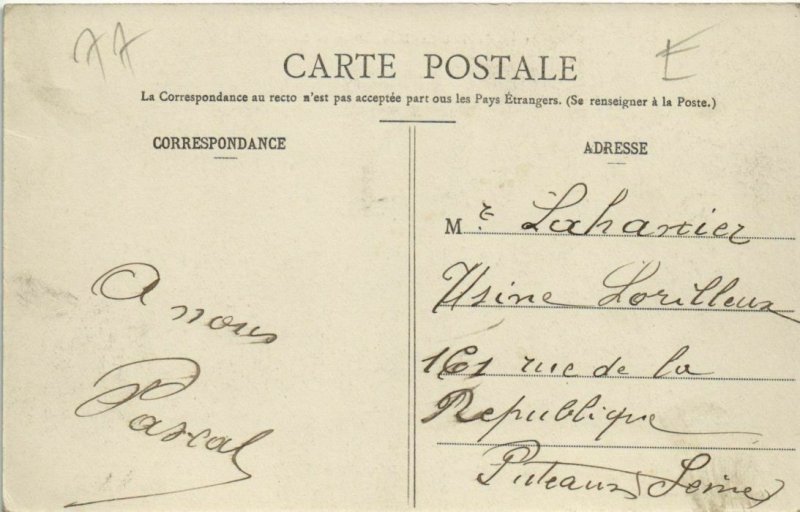 77
E
CARTE POSTALE
La Correspondance au recto n'est pas acceptée part ous les Pays Étrangers. (Se renseigner à la Poste.)
CORRESPONDANCE
A nous
Pascal
ADRESSE
Mr Lahanier
Usine Lorilleux
161 rue de la
Republique
Puteaux Seine